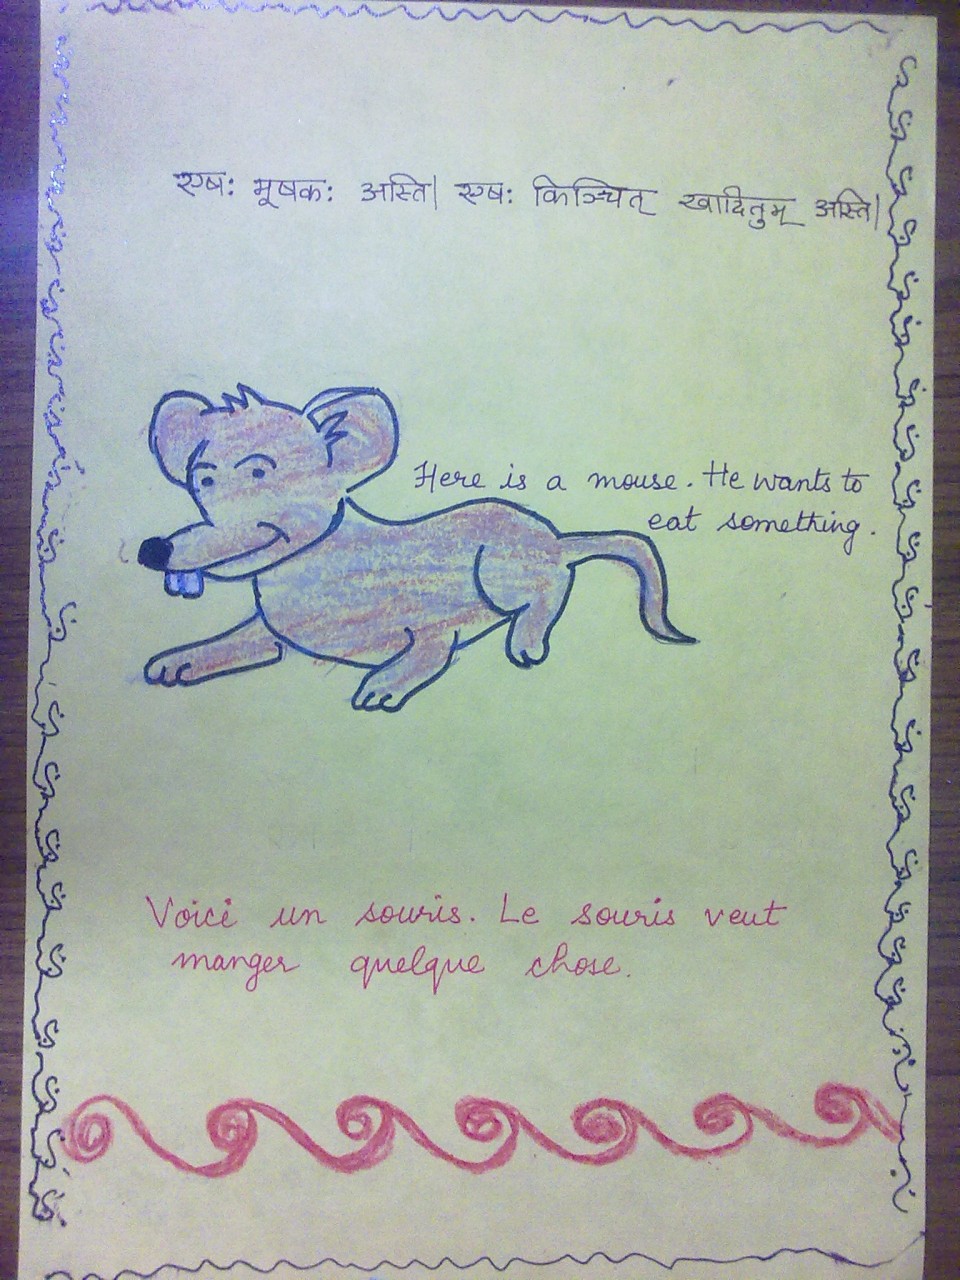 एषः मूषकः अस्ति। एषः किञ्चित् खादितुम् अस्ति।
Here is a mouse. He wants to
eat something.
Voici un souris. Le souris veut
manger quelque chose.